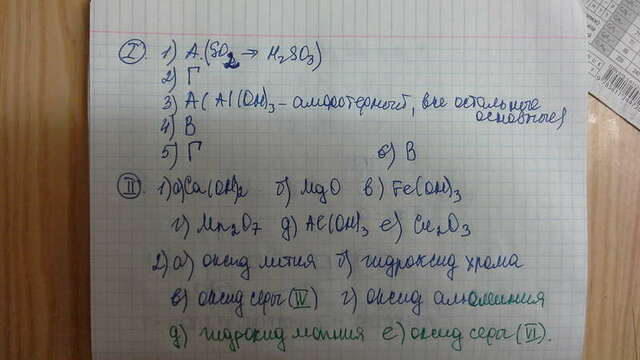 I. 1) А. (SO2 → H2SO3)
2) Г
3) А (Al(OH)3 – амфотерный, все остальные основные)
4) В
5) Г 6) В
II. 1) а) Ca(OH)2 б) MgO в) Fe(OH)3
г) Mn2O7 д) Al(OH)3 е) Cr2O3
2) а) оксид лития б) гидроксид хрома
в) оксид серы (IV) г) оксид алюминия
д) гидроксид магния е) оксид серы (VI).